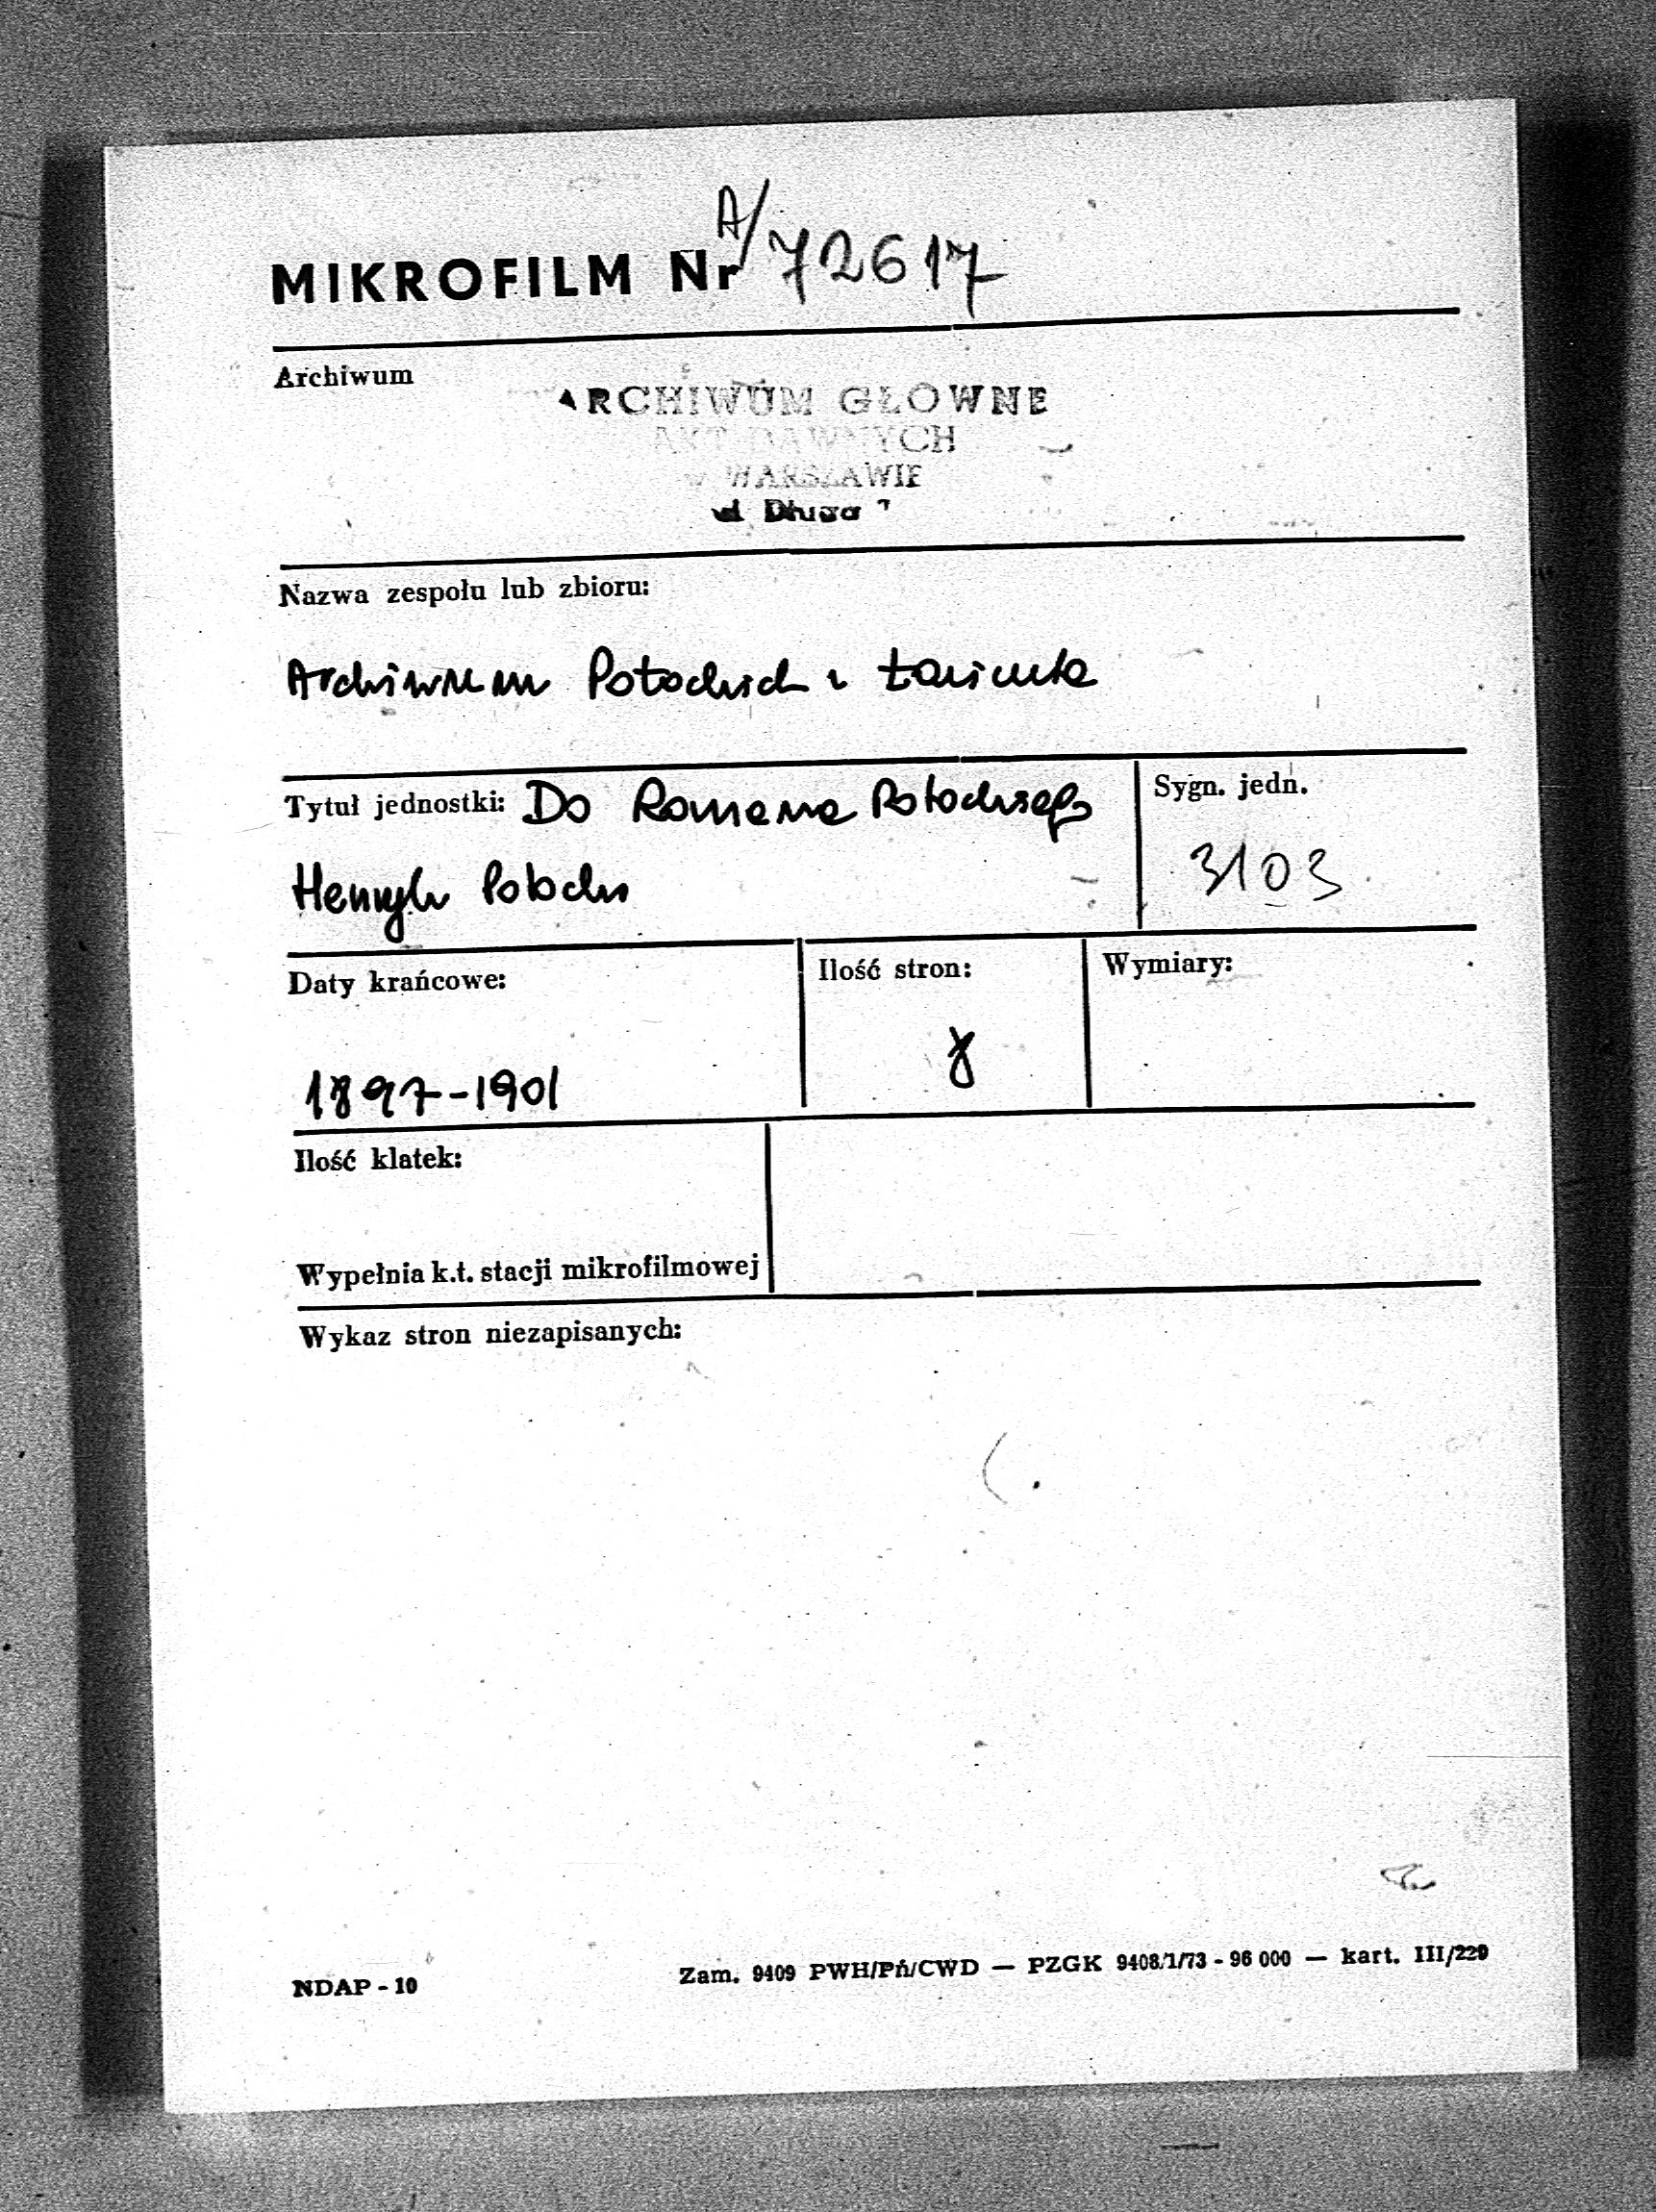 MIKROFILM Nr A/72617
Archiwum
ARCHIWUM GŁOWNE
AKT DAWNYCH
w WARSZAWIE
ul Długa 7
Nazwa zespołu lub zbioru:
Archiwum Potockich z Łańcuta
Tytuł jednostki: Do Romana Potockiego
Sygn. jedn.
3103
Henryk Potocki
Daty krańcowe:
Ilość stron:
Wymiary:
8
1897-1901
Ilość klatek:
Wypełnia k.t. stacji mikrofilmowej
Wykaz stron niezapisanych:
NDAP - 10
Zam. 9409 PWH/Pń/CWD — PZGK 9408/1/73 - 96 000 — kart. III/229